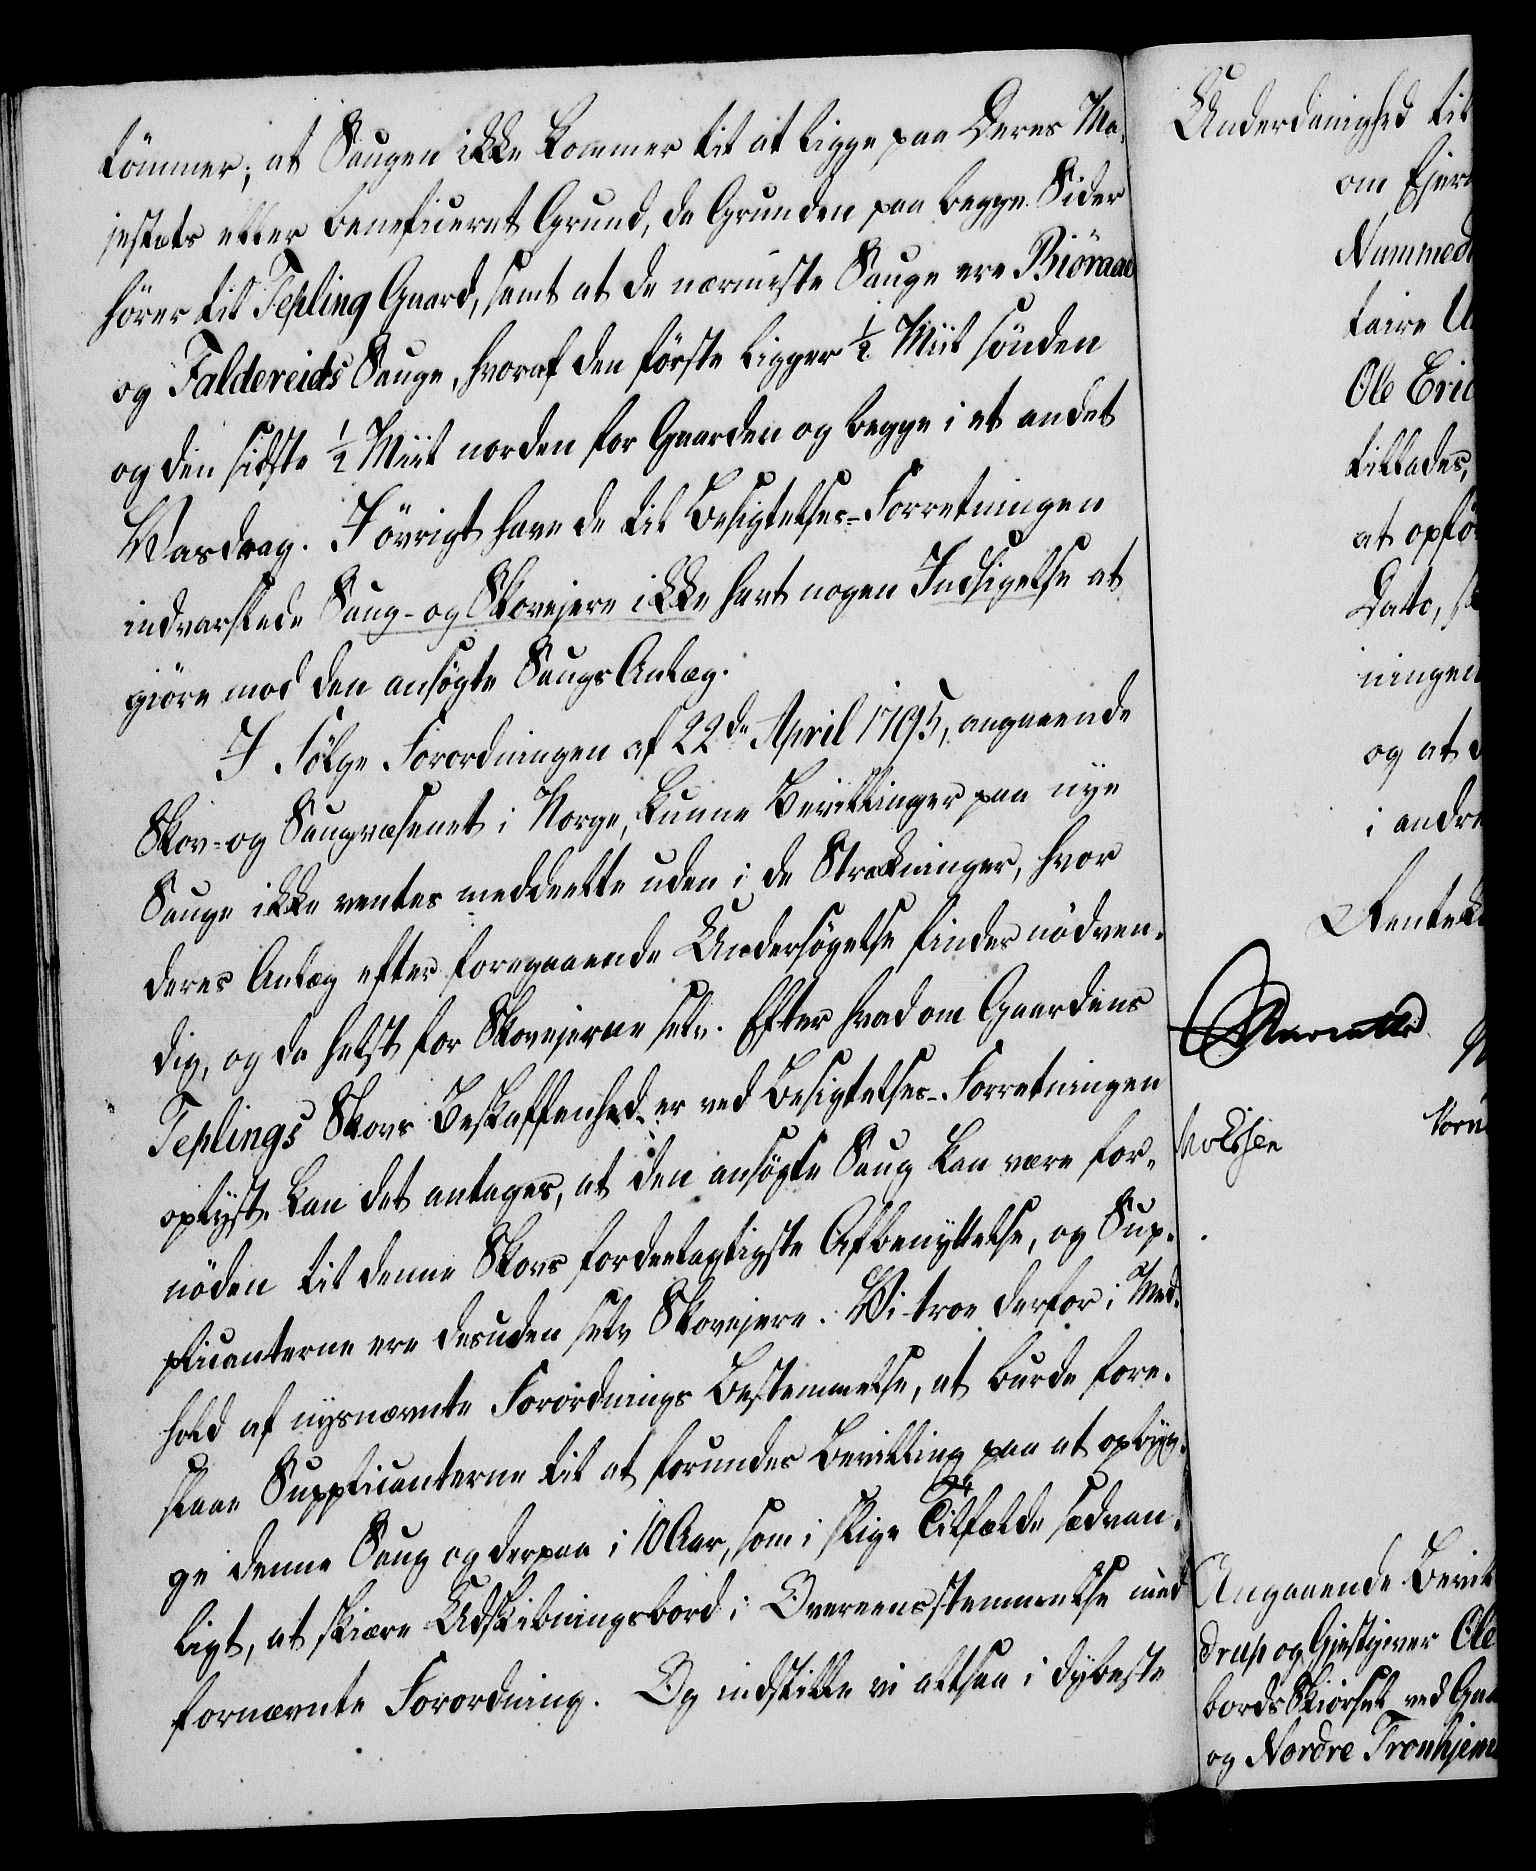 tömmer; at Saugen ikke kommer til at ligge paa Deres Ma-
jestæts eller beneficeret Grund, da Grunden paa begge Sider
hörer til Tepling Gaard, samt at de nærmeste Sauge ere Biöraae
og Faldereids Sauge, hvoraf den förste ligger 1/2 Miil sönden
og den sidste 1/2 Miil norden for Gaarden og begge i et andet
Vasdrag. I övrigt have de til Besigtelses-Forretningen
indvarslede Saug- og Skovejere ikke havt nogen Indsigelse at
giöre mod den ansögte Saugs Anlæg.
I Fölge Forordningen af 22de April 1795, angaaende
Skov- og Saugvæsenet i Norge, kunne Bevillinger paa nye
Sauge ikke ventes meddeelte uden i de Strækninger, hvor
deres Anlæg efter foregaaende Undersögelse findes nödven-
dig, og da helst for Skovejerne selv. Efter hvad om Gaardens
Teplings Skovs Beskaffenhed er ved Besigtelses-Forretningen
oplyst, kan det antages, at den ansögte Saug kan være for-
nöden til denne Skovs fordeelagtigste Afbenyttelse, og Sup-
plicanterne ere desuden selv Skovejere. Vi troe derfor i Med-
hold af nysnævnte Forordnings Bestemmelse, at burde fore-
slaae Supplicanterne til at forundes Bevilling paa at opbyg-
ge denne Saug og derpaa i 10 Aar, som i slige Tilfælde sædvan-
ligt, at skiære Udskibningsbord i Overeensstemmelse med
fornævnte Forordning. Og indstille vi altsaa i dybeste
Underdanighed til
om Ejer
Nummed
taire
Ole Eric
tillades,
at opfö
Dato,
ningen
og at
i andre
Rentek
Angaaende Bevil
drup og Gjestgiver Ole
bords Skiörsel ved Gaa
og Nordre Tronhjem